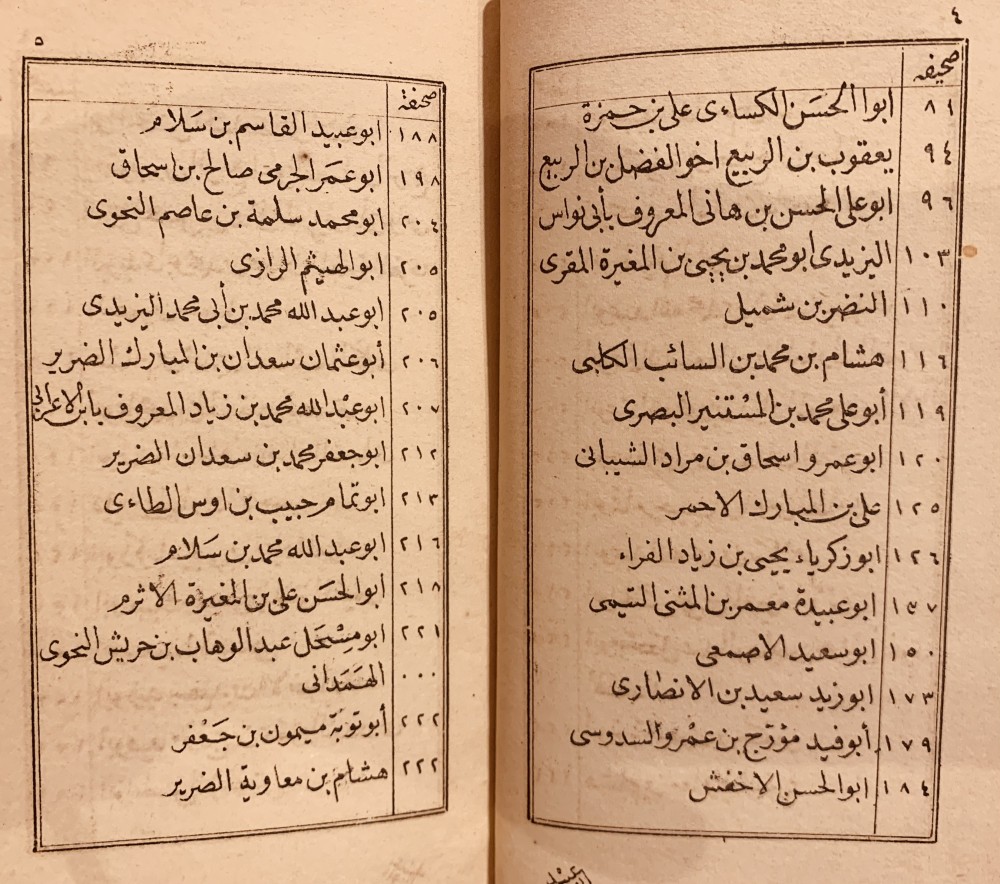 ٤
صحيفه
٨١ ابوا الحسَن الكساءى على بن حمزة
٩٤ يعقوب بن الربيع اخو الفضل بن الربيع
٩٦ ابو على الحسن بن هانى المعروف بأبى نواس
١٠٣ اليزيدى ابو محمد بن يحيى بن المغيرة المقرى
١١٠ النضر بن شميل
١١٦ هشام بن محمد بن السائب الكلبى
١١٩ أبو على محمد بن المسْتنير البصرى
١٢٠ ابو عمرو اسحاق بن مراد الشيبانى
١٢٥ على بن المبارك الاحمر
١٢٦ ابو زكرياء يحيى بن زياد الفراء
١٣٧ ابو عبيدة معمر بن المثنى التيمى
١٥٠ ابو سعيد الاصمعى
١٧٣ ابو زيد سعيد بن الانصارى
١٧٩ أبو فيد مؤرّج بن عمْرو السدوسى
١٨٤ ابو الحسن الاخفش
٥
صحيفة
١٨٨ ابو عبيد القاسم بن سَلام
١٩٨ ابو عمَر الجرمى صالح بن اسحاق
٢٠٤ ابو محمد سلمة بن عاصم النحوى
٢٠٥ ابو الهيثم الرازى
٢٠٥ ابو عبد الله محمد بن أبى محمد اليزيدى
٢٠٦ أبو عثمان سعدان بن المبارك الضرير
٢٠٧ ابو عبْد الله محمد بن زياد المعروف بابن الاعرابى
٢١٢ ابو جعفر محمد بن سعدان الضرير
٢١٣ ابو تمام حبيب بن اوس الطاءى
٢١٦ ابو عبد الله محمد بن سَلام
٢١٨ ابو الحسَن على بن المغيرة الاثرم
٢٢١ ابو مِسْحَل عبد الوهاب بن حريش النحوى
٠٠٠ الهَمَدانى
٢٢٢ أبو توبَة ميمون بن جَعْفر
٢٢٢ هشام بن معاوية الضرير